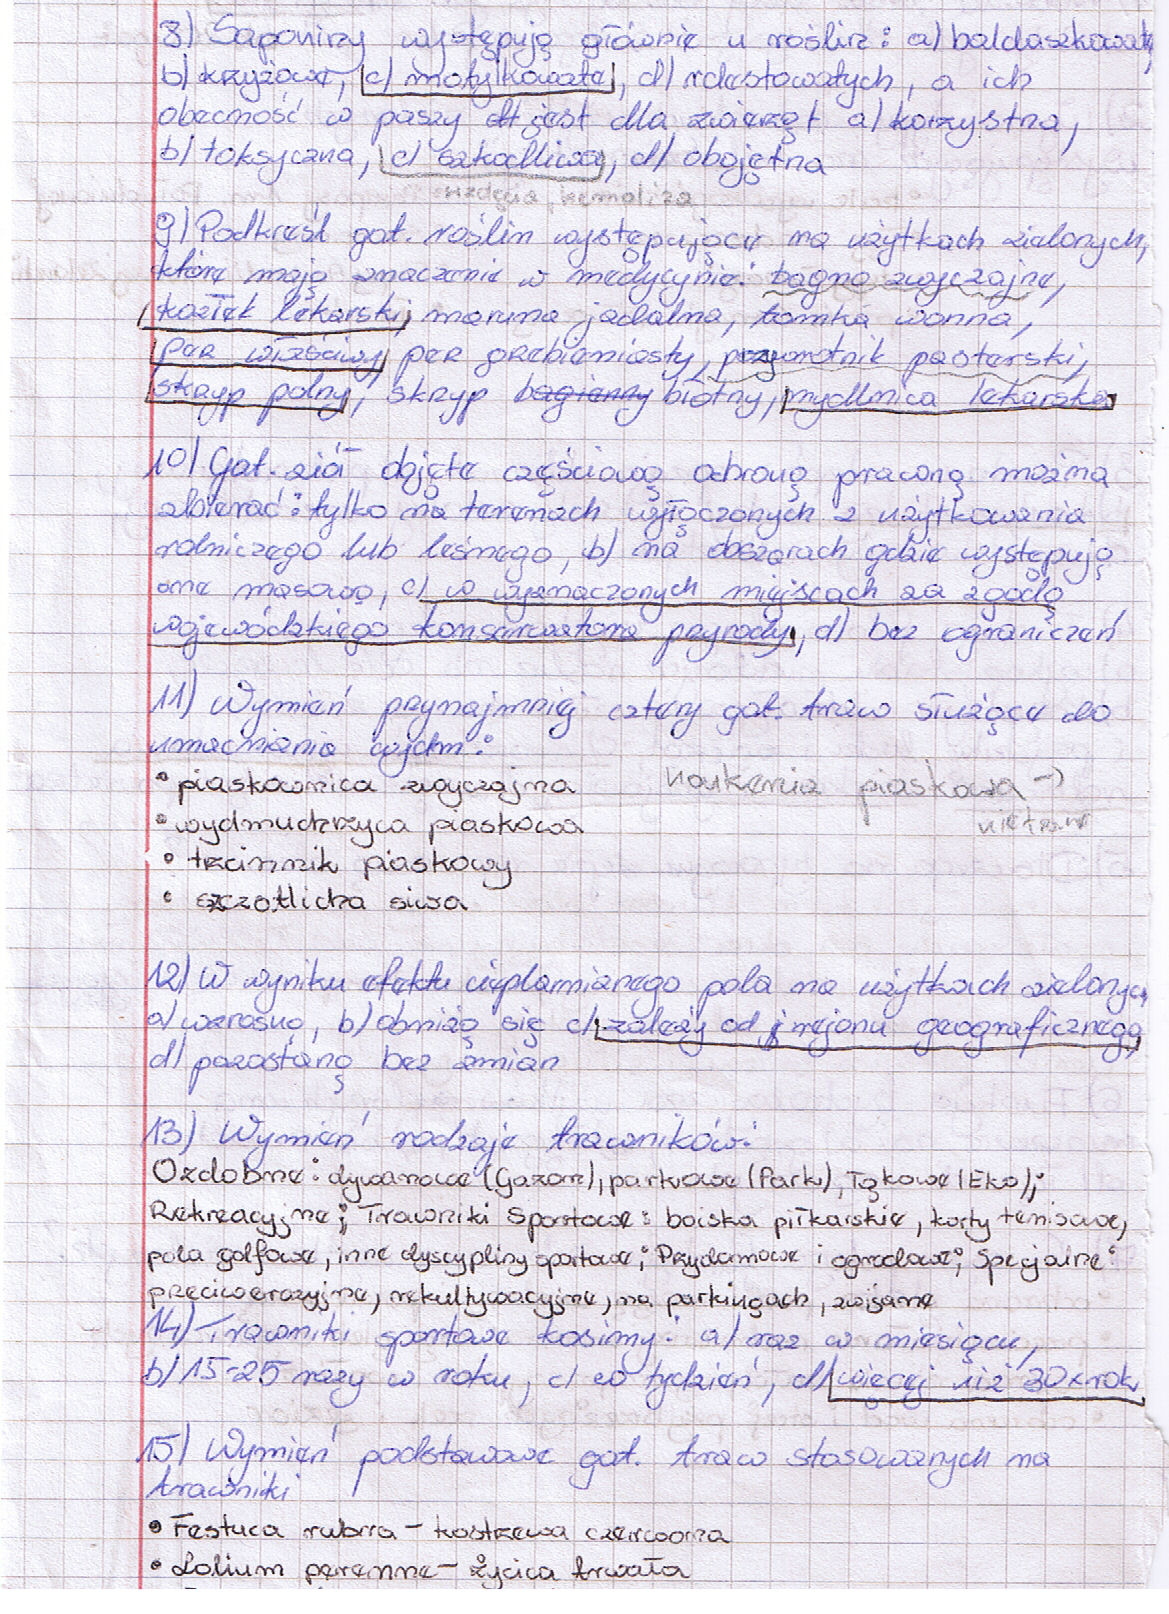 8) Saponiny występują głównie u roślin: a) baldaszkowate,
b) krzyżowe, c) motylkowate, d) rdestowatych, a ich
obecność w paszy jest dla zwierząt a) korzystna,
b) toksyczna, c) szkodliwa, d) obojętna
9) Podkreśl gat. roślin występujące na użytkach zielonych,
które mają znaczenie w medycynie: bagno zwyczajne,
kozłek lekarski, maruna jadalna, tomka wonna,
per właściwy, per grzebieniasty, przymiotnik pasterski,
skrzyp polny, skrzyp bagienny błotny, mydlnica lekarska
10) Gat. ziół objęte częściową ochroną prawną można
zbierać: tylko na terenach wyłączonych z użytkowania
rolniczego lub leśnego, b) na obszarach gdzie występują
one masowo, c) w wyznaczonych miejscach za zgodą
wojewódzkiego konserwatora przyrody, d) bez ograniczeń
11) Wymień przynajmniej cztery gat. traw służące do
umacniania wydm:
• piaskownica zwyczajna honkenia piaskowa →
• wydmuchrzyca piaskowa nie traw
• trzcinnik piaskowy
• szczotlicha siwa
12) W wyniku efektu cieplarnianego pola na użytkach zielonych
a) wzrosną, b) obniżą się c) zależy od rejonu geograficznego,
d) pozostaną bez zmian
13) Wymień rodzaje trawników:
Ozdobne: dywanowe (Gazon), parkowe (Park), łąkowe (Eko);
Rekreacyjne; Trawniki Sportowe: boiska piłkarskie, korty tenisowe,
pola golfowe, inne dyscypliny sportowe; Przydomowe i ogrodowe; Specjalne:
przeciwerozyjne, rekultywacyjne, na parkingach, zwisane
14) Trawniki sportowe kosimy: a) raz w miesiącu,
b) 15-25 razy w roku, c) co tydzień, d) więcej niż 30x rok
15) Wymień podstawowe gat. traw stosowanych na
trawniki
• Festuca rubra - kostrzewa czerwona
• Lolium perenne - życica trwała